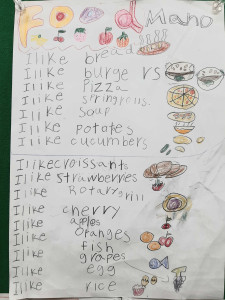 Food
Mano
I like bread
I like burge rs
I like Pizza
I like
I like soup
I like potates
I like cucumbers
I like croissant
I like strawberries
I like Rotary grill
I like cherry
I like apples
I like oranges
I like fish
I like grapes
I like egg
I like rice